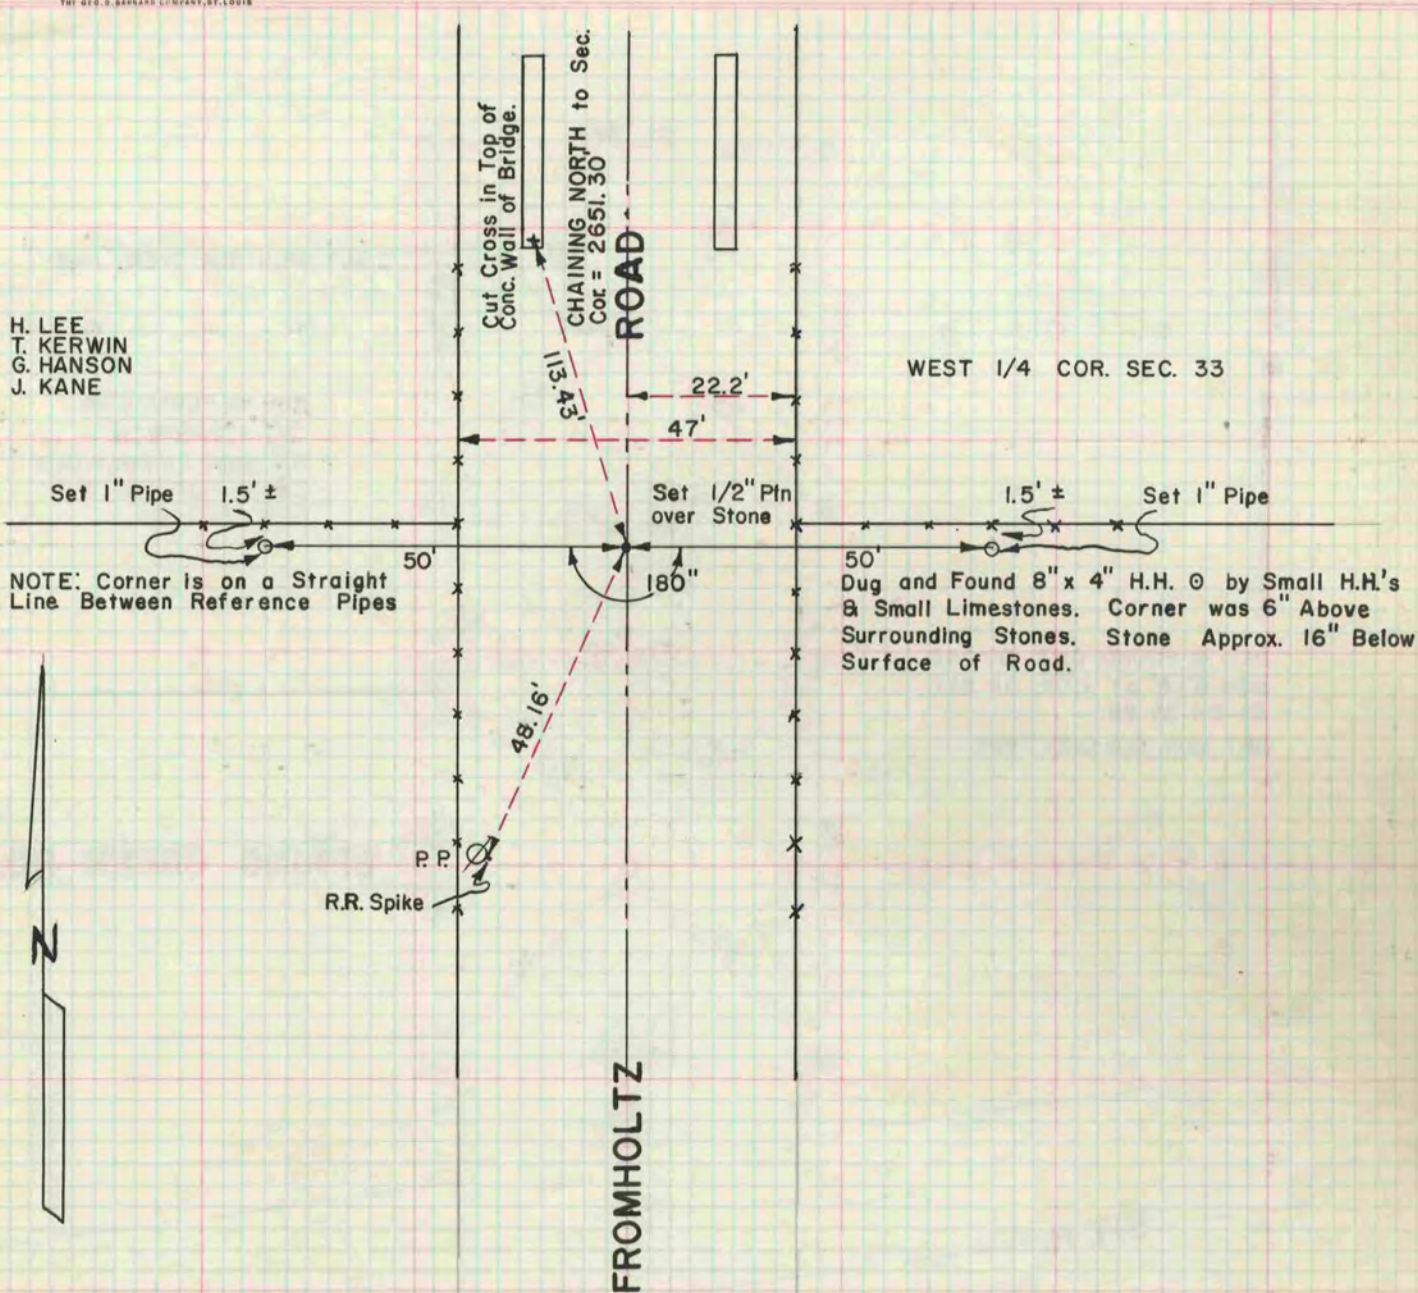 THE GEO. D. BARNARD COMPANY, ST. LOUIS
Cut Cross in Top of
Conc. Wall of Bridge.
CHAINING NORTH to Sec.
Cor. = 2651.30'
ROAD
H. LEE
T. KERWIN
G. HANSON
J. KANE
WEST 1/4 COR. SEC. 33
113.43'
22.2'
47'
Set 1" Pipe
1.5' ±
Set 1/2" Pin
over Stone
1.5' ±
Set 1" Pipe
50'
50'
180°
NOTE: Corner is on a Straight
Line Between Reference Pipes
Dug and Found 8" x 4" H.H. ⊙ by Small H.H.'s
& Small Limestones. Corner was 6" Above
Surrounding Stones. Stone Approx. 16" Below
Surface of Road.
48.16'
P.P.
R.R. Spike
N
FROMHOLTZ